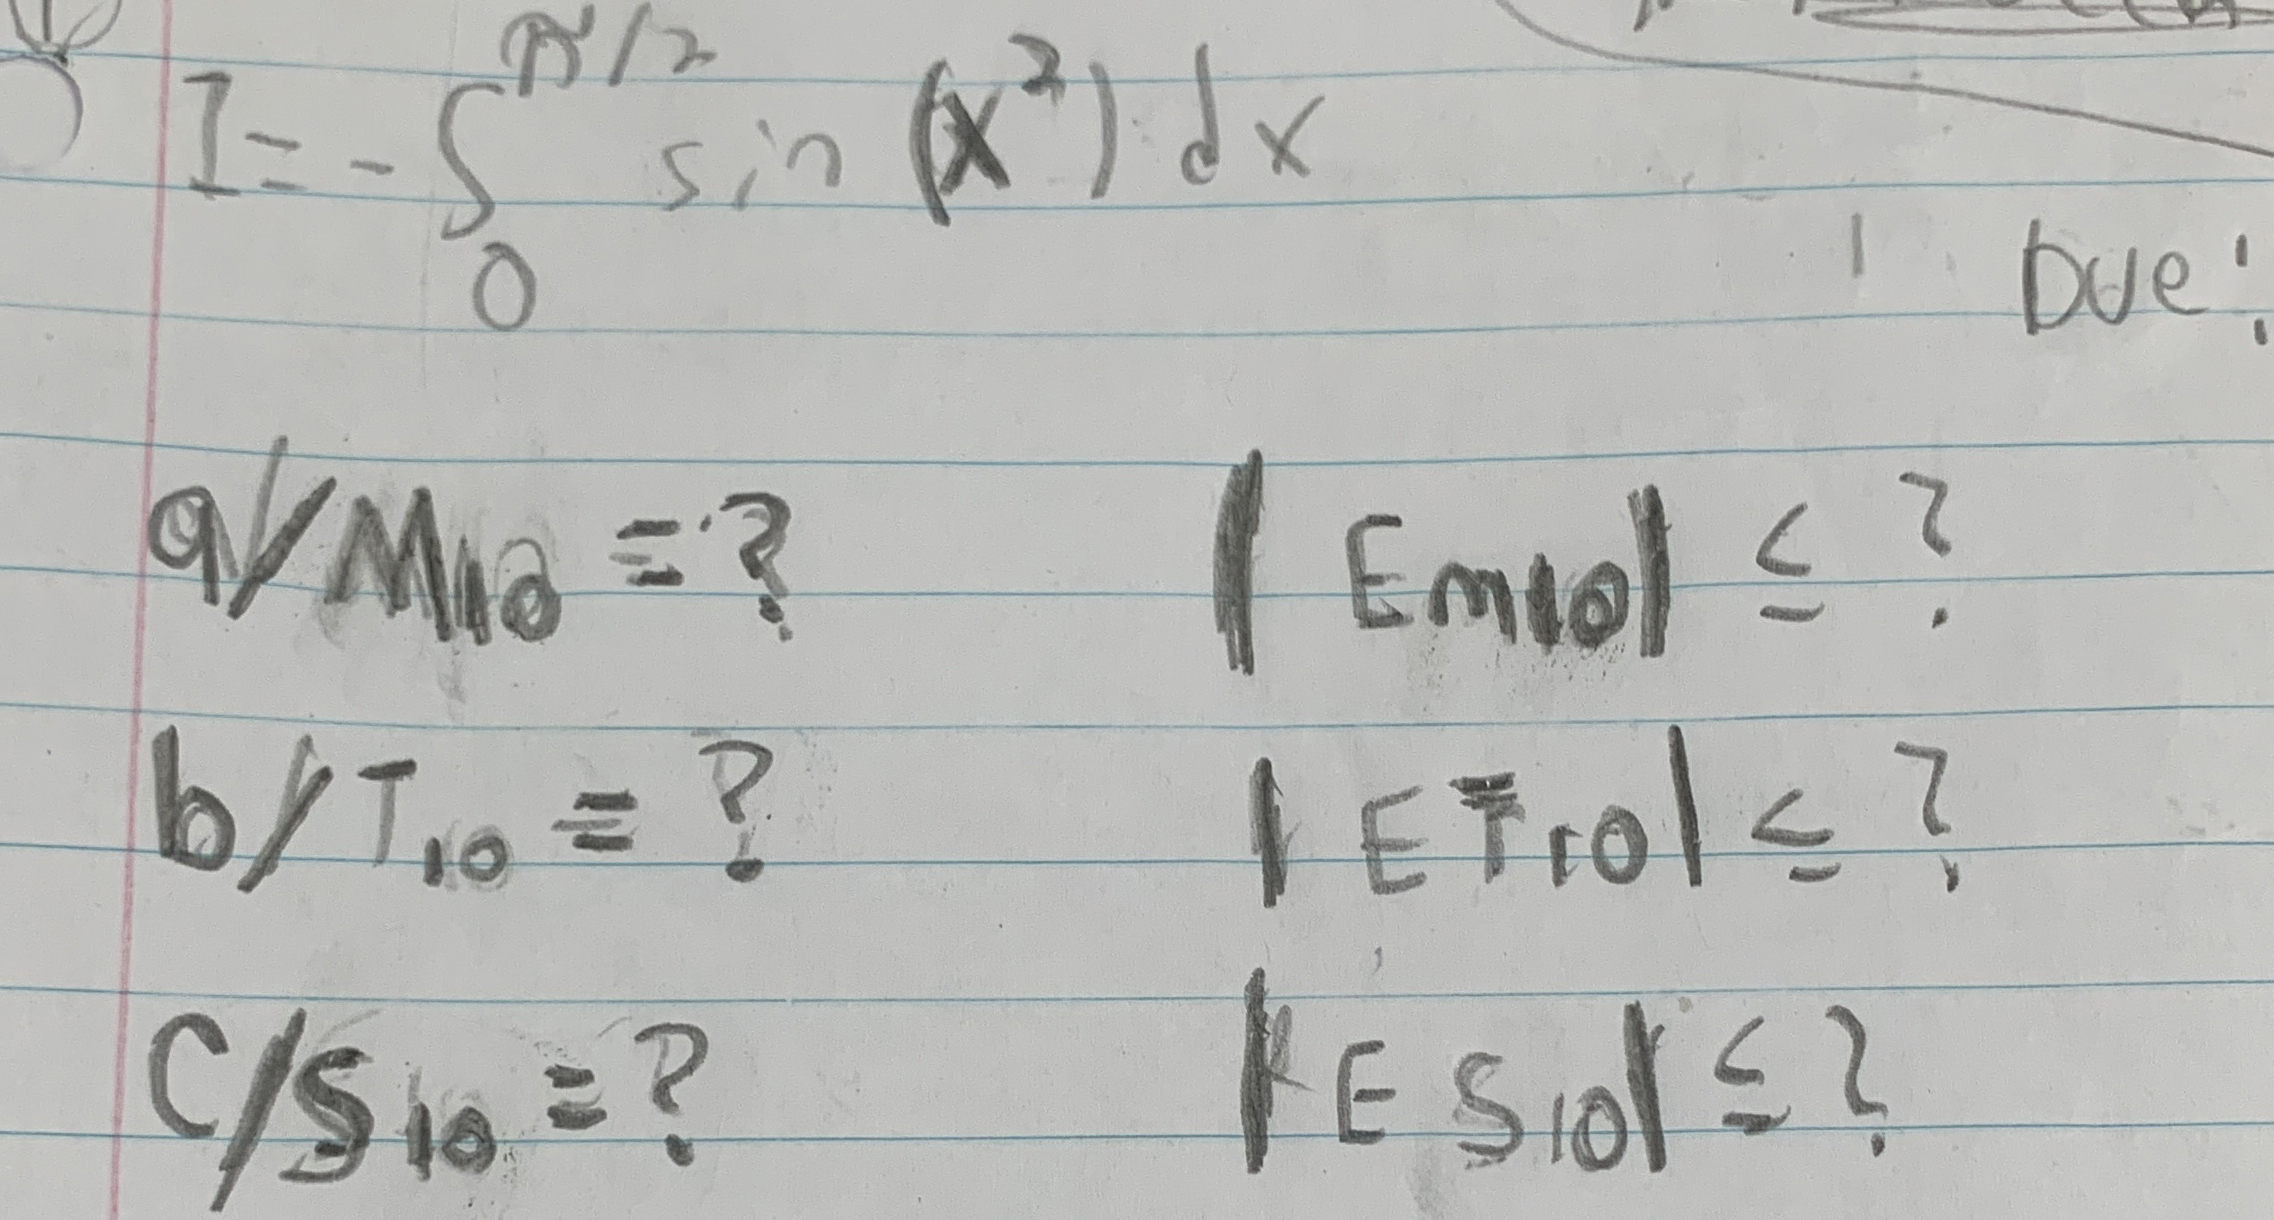 I = - ∫₀^π/2 sin (x²) dx
Due:
a/ M₁₀ = ? |Em₁₀| ≤ ?
b/ T₁₀ = ? |ET₁₀| ≤ ?
c/ S₁₀ = ? |ES₁₀| ≤ ?